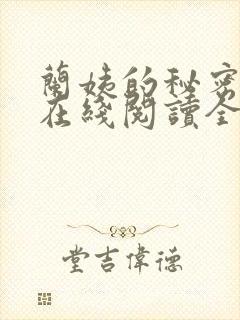 蘭姨的秘密
在綫閱讀全
堂吉偉德